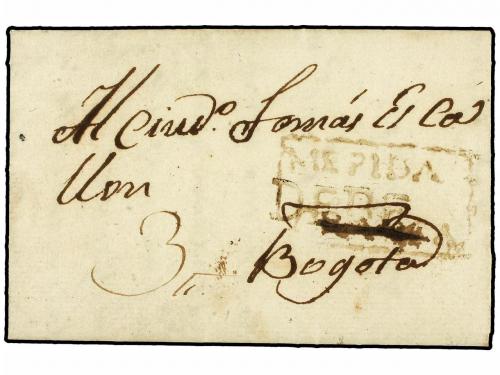 Al Ciud.º Tomás Esca
llon
MERIDA
DEBE
3
Bogotá